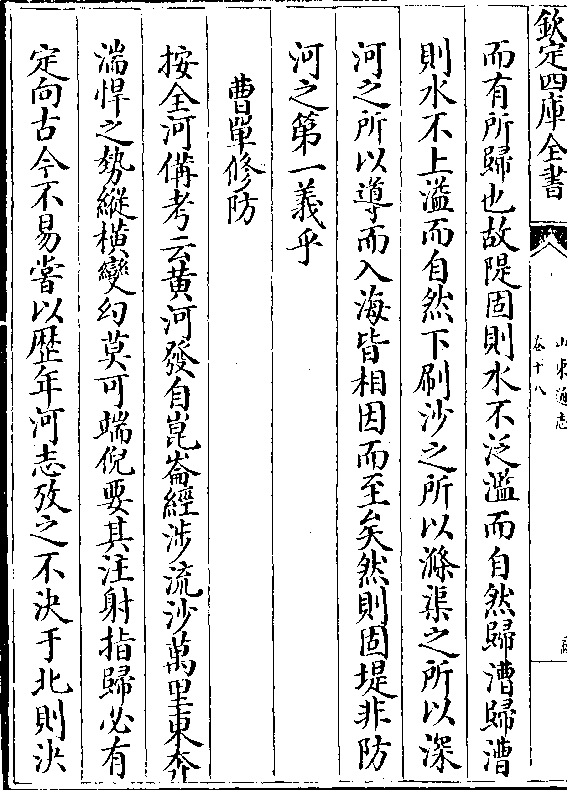 欽定四庫全書
山東通志
卷十八
而有所歸也故隄固則水不泛濫而自然歸漕歸漕
則水不上濫而自然下刷沙之所以滌渠之所以深
河之所以導而入海皆相因而至矣然則固堤非防
河之第一義乎
曹單修防
按全河備考云黃河發自崑崙經涉流沙萬里東奔
湍悍之勢縱橫變幻莫可端倪要其注射指歸必有
定向古今不易嘗以歴年河志攷之不決于北則決